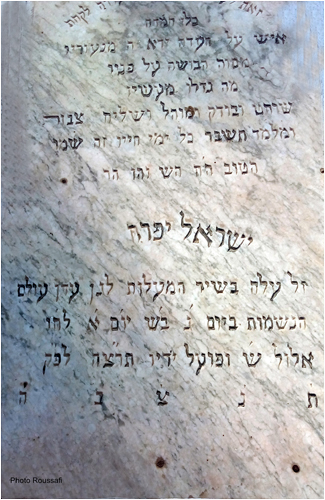 כלי חמדה
אשר על
מסוה הבושה על פניו
מה גדלו מעשיו
שוחט ובודק ומוהל ושליח צבור
ומלמד תשבר כל ימי חייו זה שמו
הטוב הה הש והן הר
ישראל יפרח
זל עלה בשיר המעלות לגן עדן עולם
הנשמות ביום ג בש יום א לחו
אלול ש ופועל ידיו תרצה לפק
ת נ צ ב ה
Photo Roussafi